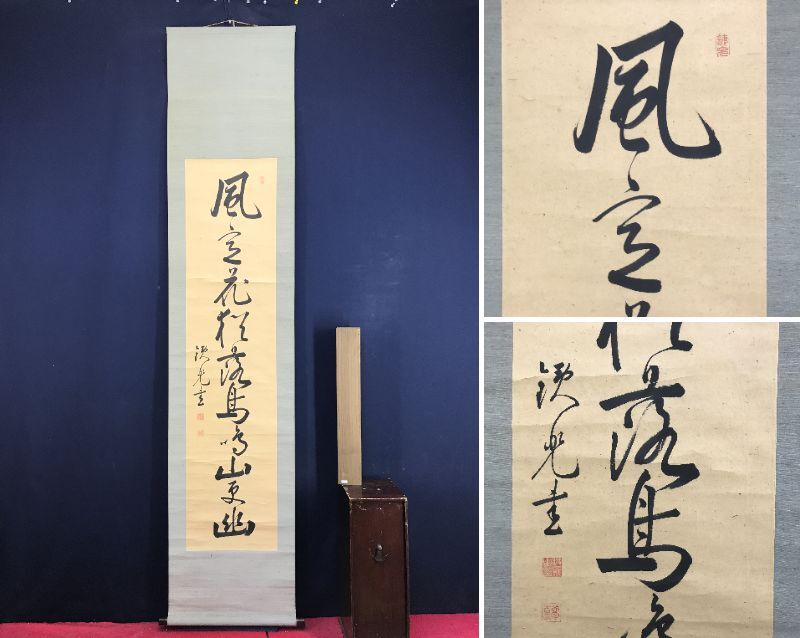 風定花猶落鳥鳴山更幽
鐵光書